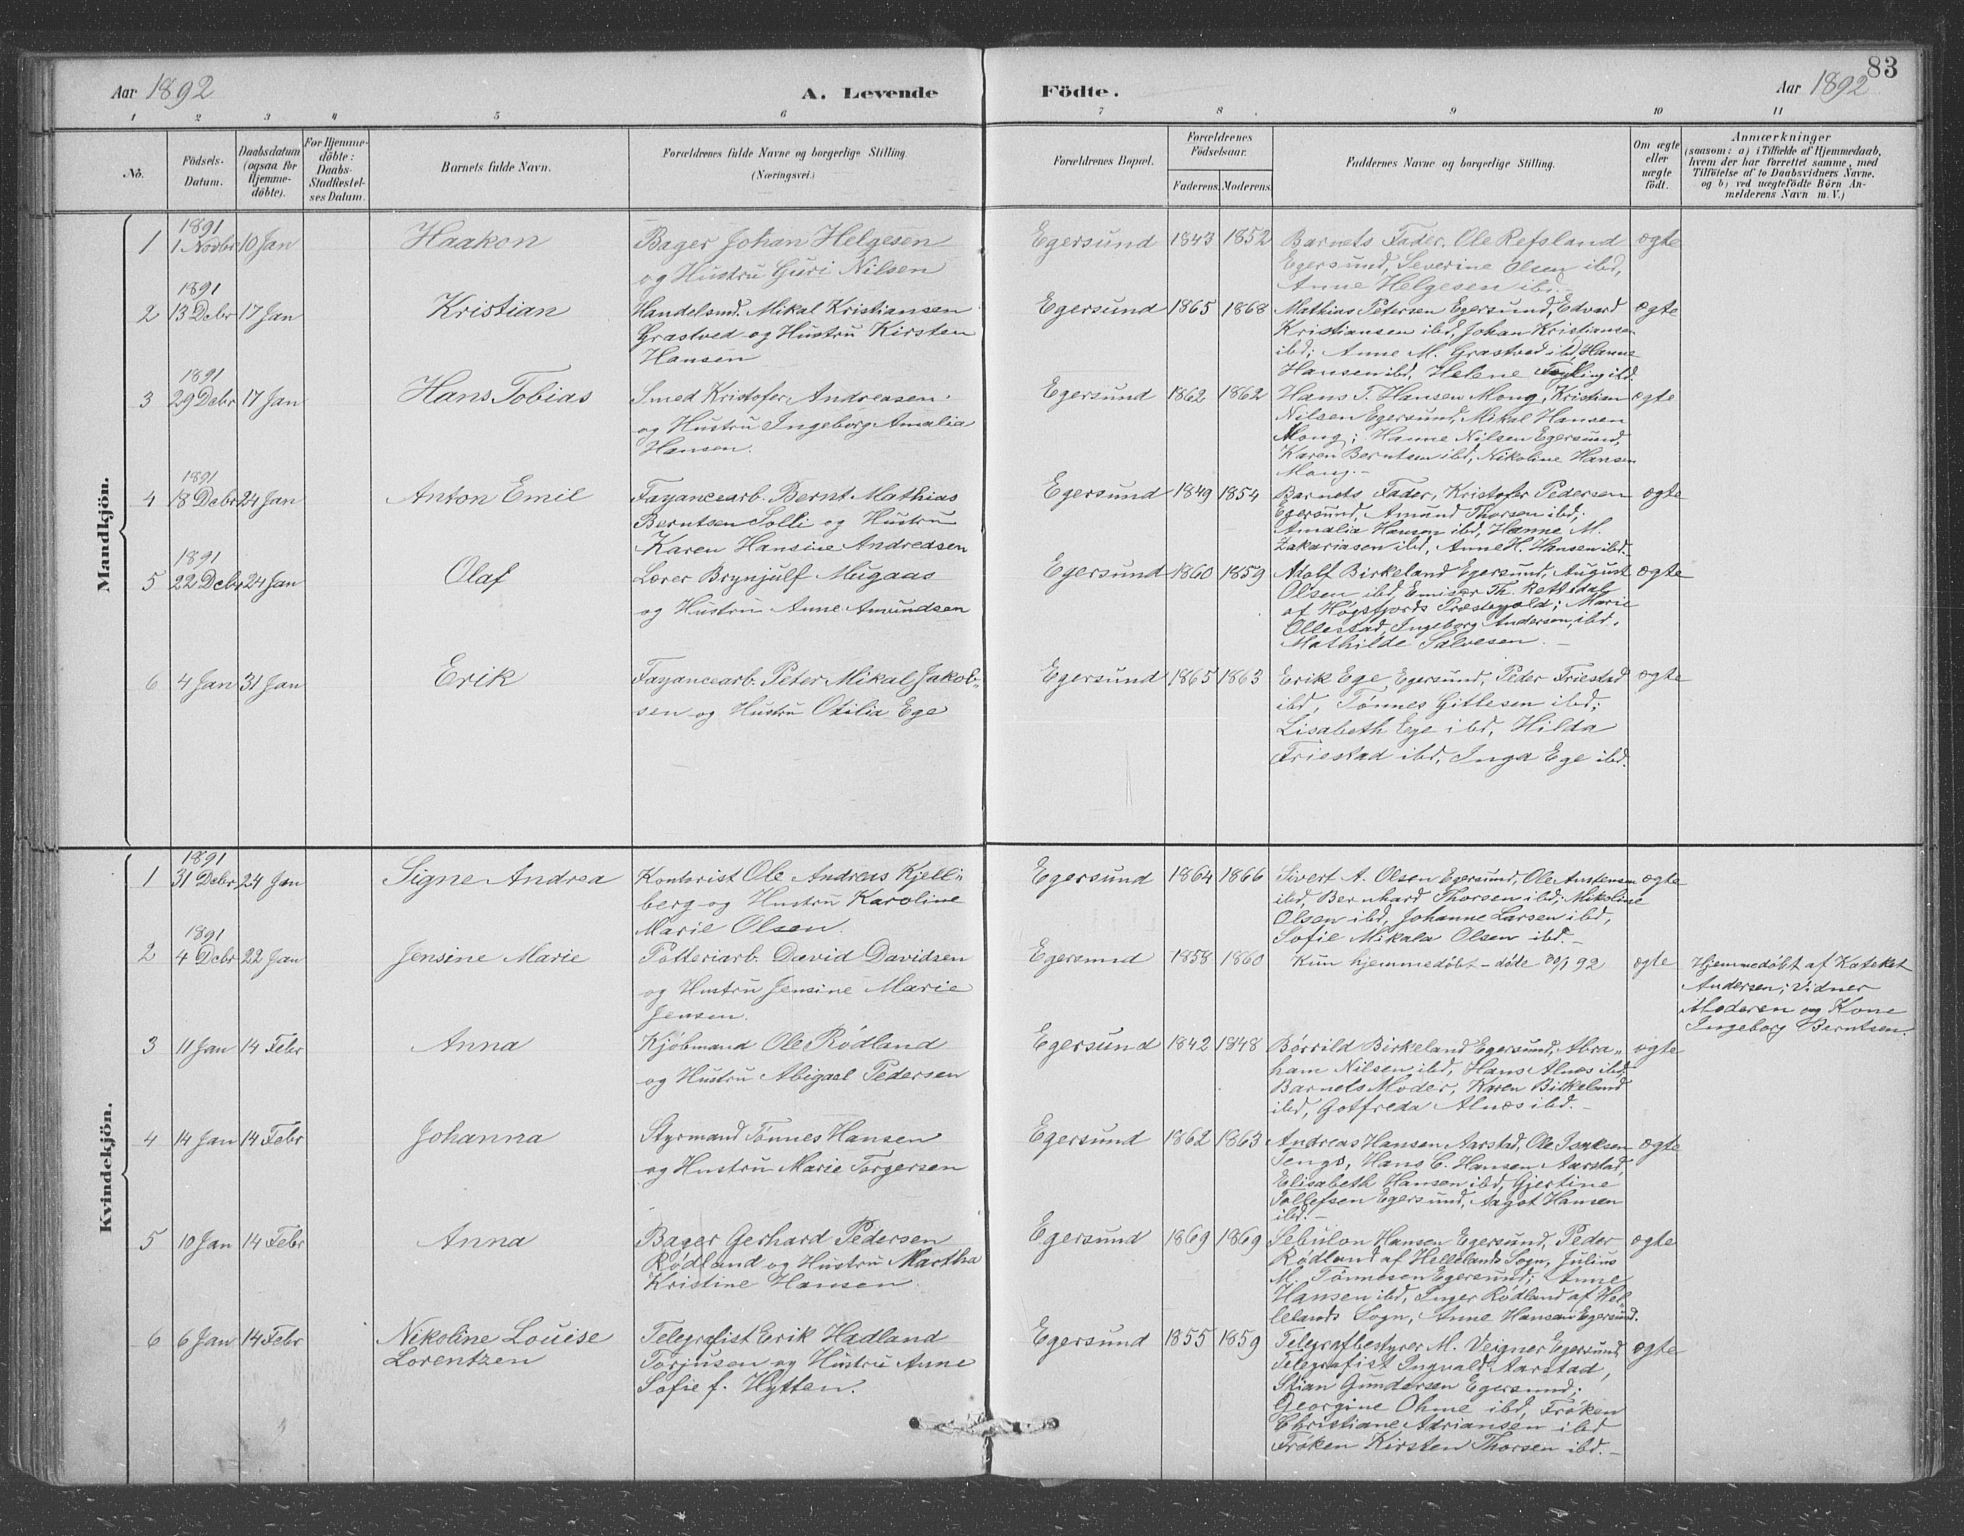 83
Aar 1892 A. Levende Födte. Aar 1892
1 2 3 4 5 6 7 8 9 10 11
No.
Födsels-
Datum.
Daabsdatum
(ogsaa for
Hjemme-
döbte).
For Hjemme-
döbte:
Daabs-
Stadfæstel-
ses Datum.
Barnets fulde Navn.
Forældrenes fulde Navne og borgerlige Stilling.
(Næringsvei.)
Forældrenes Bopæl.
Forældrenes
Födselsaar.
Faderens. Moderens.
Faddernes Navne og borgerlige Stilling.
Om ægte
eller
uægte
født.
Anmærkninger
(saasom: a) i Tilfælde af Hjemmedaab,
hvem der har forrettet samme, med
Tilföielse af to Daabsvidners Navne,
og b) ved uægtefödte Börn An-
melderens Navn m. V.)
Mandkjön.
1891
1 1 Novbr 10 Jan Haakon
Bager Johan Helgesen
og Hustru Guri Nilsen
Egersund 1843 1852
Barnets Fader, Ole Refsland
Egersund, Severine Olsen ibd,
Anne Helgesen ibd.-
ægte
1891
2 13 Debr 17 Jan Kristian
Handelsmd. Mikal Kristiansen
Grastved og Hustru Kirsten
Hansen
Egersund 1865 1868
Mathias Petersen Egersund, Edvard
Kristiansen ibd, Johan Kristiansen
ibd; Anne M. Grastved ibd, Hanne
Hansen ibd, Helene ibd.
ægte
1891
3 29 Debr 17 Jan Hans Tobias
Smed Kristofer Andreasen
og Hustru Ingeborg Amalia
Hansen.
Egersund 1862 1862
Hans T. Hansen Mong, Kristian
Nilsen Egersund, Mikal Hansen
Mong; Hanne Nilsen Egersund,
Karen Berntsen ibd, Nikoline Hansen
Mong.-
ægte
1891
4 18 Debr 24 Jan Anton Emil
Fayancearb. Bernt Mathias
Berntsen Solli og Hustru
Karen Hansine Andreasen
Egersund 1849 1854
Barnets Fader, Kristofer Pedersen
Egersund, Amund Thorsen ibd;
Amalia Hansen ibd, Hanne M.
Zakariasen ibd, Anne H. Hansen ibd.
ægte
1891
5 22 Debr 24 Jan Olaf
Lærer Brynjulf Mugaas
og Hustru Anne Amundsen
Egersund 1860 1859
Adolf Birkeland Egersund, August
Olsen ibd, Emisær Th. Rettedal
af Høgsfjords Præstegjeld; Marie
Ollestad, Ingeborg Andersen, ibd,
Mathilde Salvesen.-
ægte
6 4 Jan 31 Jan Erik
Fayancearb. Peter Mikal Jakob-
sen og Hustru Otilia Ege
Egersund 1865 1863
Erik Ege Egersund, Peder Friestad
ibd, Tønnes Gittesen ibd;
Lisabeth Ege ibd, Hilda
Friestad ibd, Inga Ege ibd.
ægte
Kvindekjön.
1891
1 31 Debr 24 Jan Signe Andrea
Kontorist Ole Andreas Kjell-
berg og Hustru Karoline
Marie Olsen.
Egersund 1864 1866
Sivert A. Olsen Egersund, Ole Austensen
ibd, Bernhard Thorsen ibd; Mikoline
Olsen ibd, Johanne Larsen ibd,
Sofie Mikala Olsen ibd.-
ægte
1891
2 4 Debr 22 Jan Jensine Marie
Potteriarb. David Davidsen
og Hustru Jensine Marie
Jensen.
Egersund 1858 1860
Kun hjemmedøbt - døde 30/1 92
ægte
Hjemmedøbt af Kateket
Andersen; Vidner
Moderen og Kone
Ingeborg Berntsen.
3 11 Jan 14 Febr Anna
Kjøbmand Ole Rødland
og Hustru Abigael Pedersen
Egersund 1842 1848
Børrild Birkeland Egersund, Abra-
ham Nilsen ibd, Hans Alnæs ibd,
Barnets Moder, Karen Birkeland
ibd, Gotfreda Alnæs ibd.-
ægte
4 14 Jan 14 Febr Johanna
Styrmand Tønnes Hansen
og Hustru Marie Torgersen
Egersund 1862 1863
Andreas Hansen Aarstad, Ole Isaksen
Tengs, Hans C. Hansen Aarstad,
Elisabeth Hansen ibd, Gjertine
Tollefsen Egersund, Aagot Hansen
ibd.-
ægte
5 10 Jan 14 Febr Anna
Bager Gerhard Pedersen
Rødland og Hustru Martha
Kristine Hansen.
Egersund 1869 1869
Sebulon Hansen Egersund, Peder
Rødland af Hellelands Sogn, Julius
M. Tønnesen Egersund; Anne
Hansen ibd, Inger Rødland af Hel-
lelands Sogn, Anne Hansen Egersund.
ægte
6 6 Jan 14 Febr Nikoline Louise
Lorentzen
Telegrafist Erik Hadland
Torjusen og Hustru Anne
Sofie f. Hytten.
Egersund 1855 1859
Telegrafbestyrer M. Veigner Egersund
Telegrafist Ingvald Aarstad,
Stian Gundersen Egersund;
Georgine Ohme ibd, Frøken
Christiane Adriansen ibd
Frøken Kirsten Thorsen ibd.-
ægte